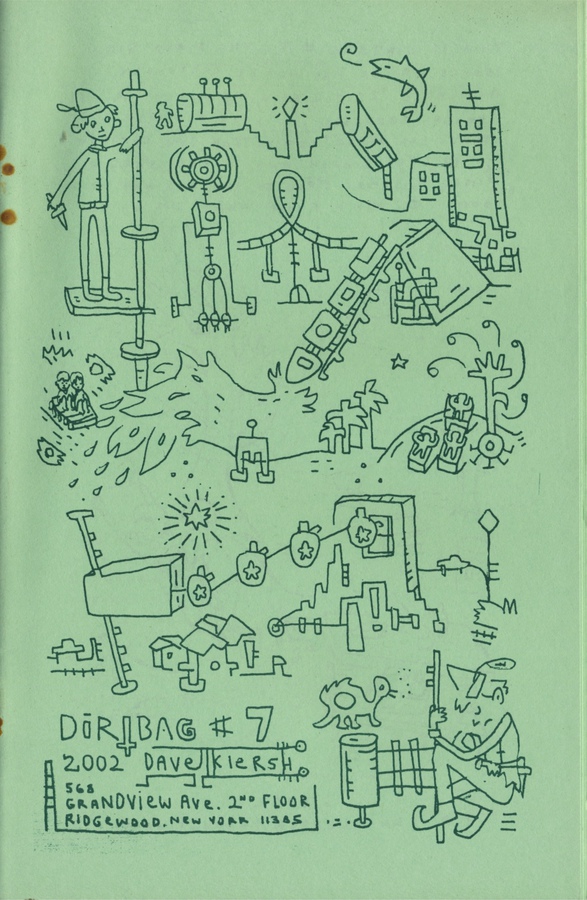 DiRTBAG # 7
2002 DAVe KieRSH
568
GRANDView Ave. 2ND FLOOR
RIDGewooD. New YoRK 11385